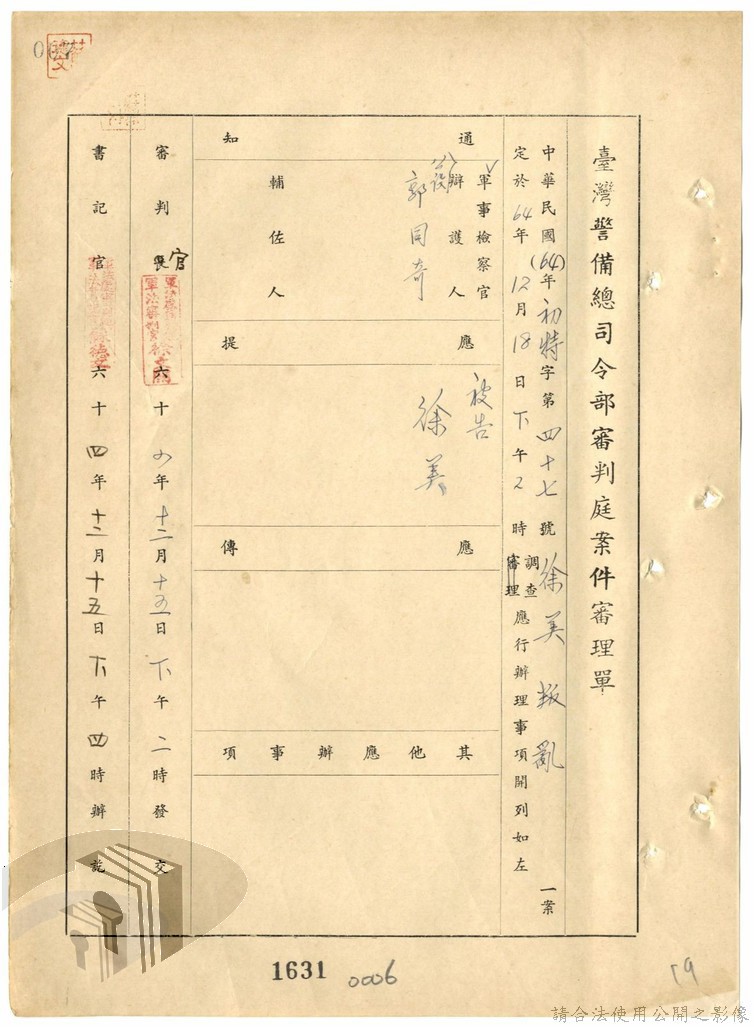 臺灣警備總司令部審判庭案件審理單
中華民國(64)年初特字第四十七號徐美叛亂一案
定於64年12月18日下午2時調查審理應行辦理事項開列如左
通知
軍事檢察官
公設辯護人
郭同奇
輔佐人
應提
被告
徐美
應傳
其他應辦事項
審判長官
六十四年十二月十五日下午二時發交
書記官
六十四年十二月十五日下午四時辦訖
1631
0006
19
請合法使用公開之影像